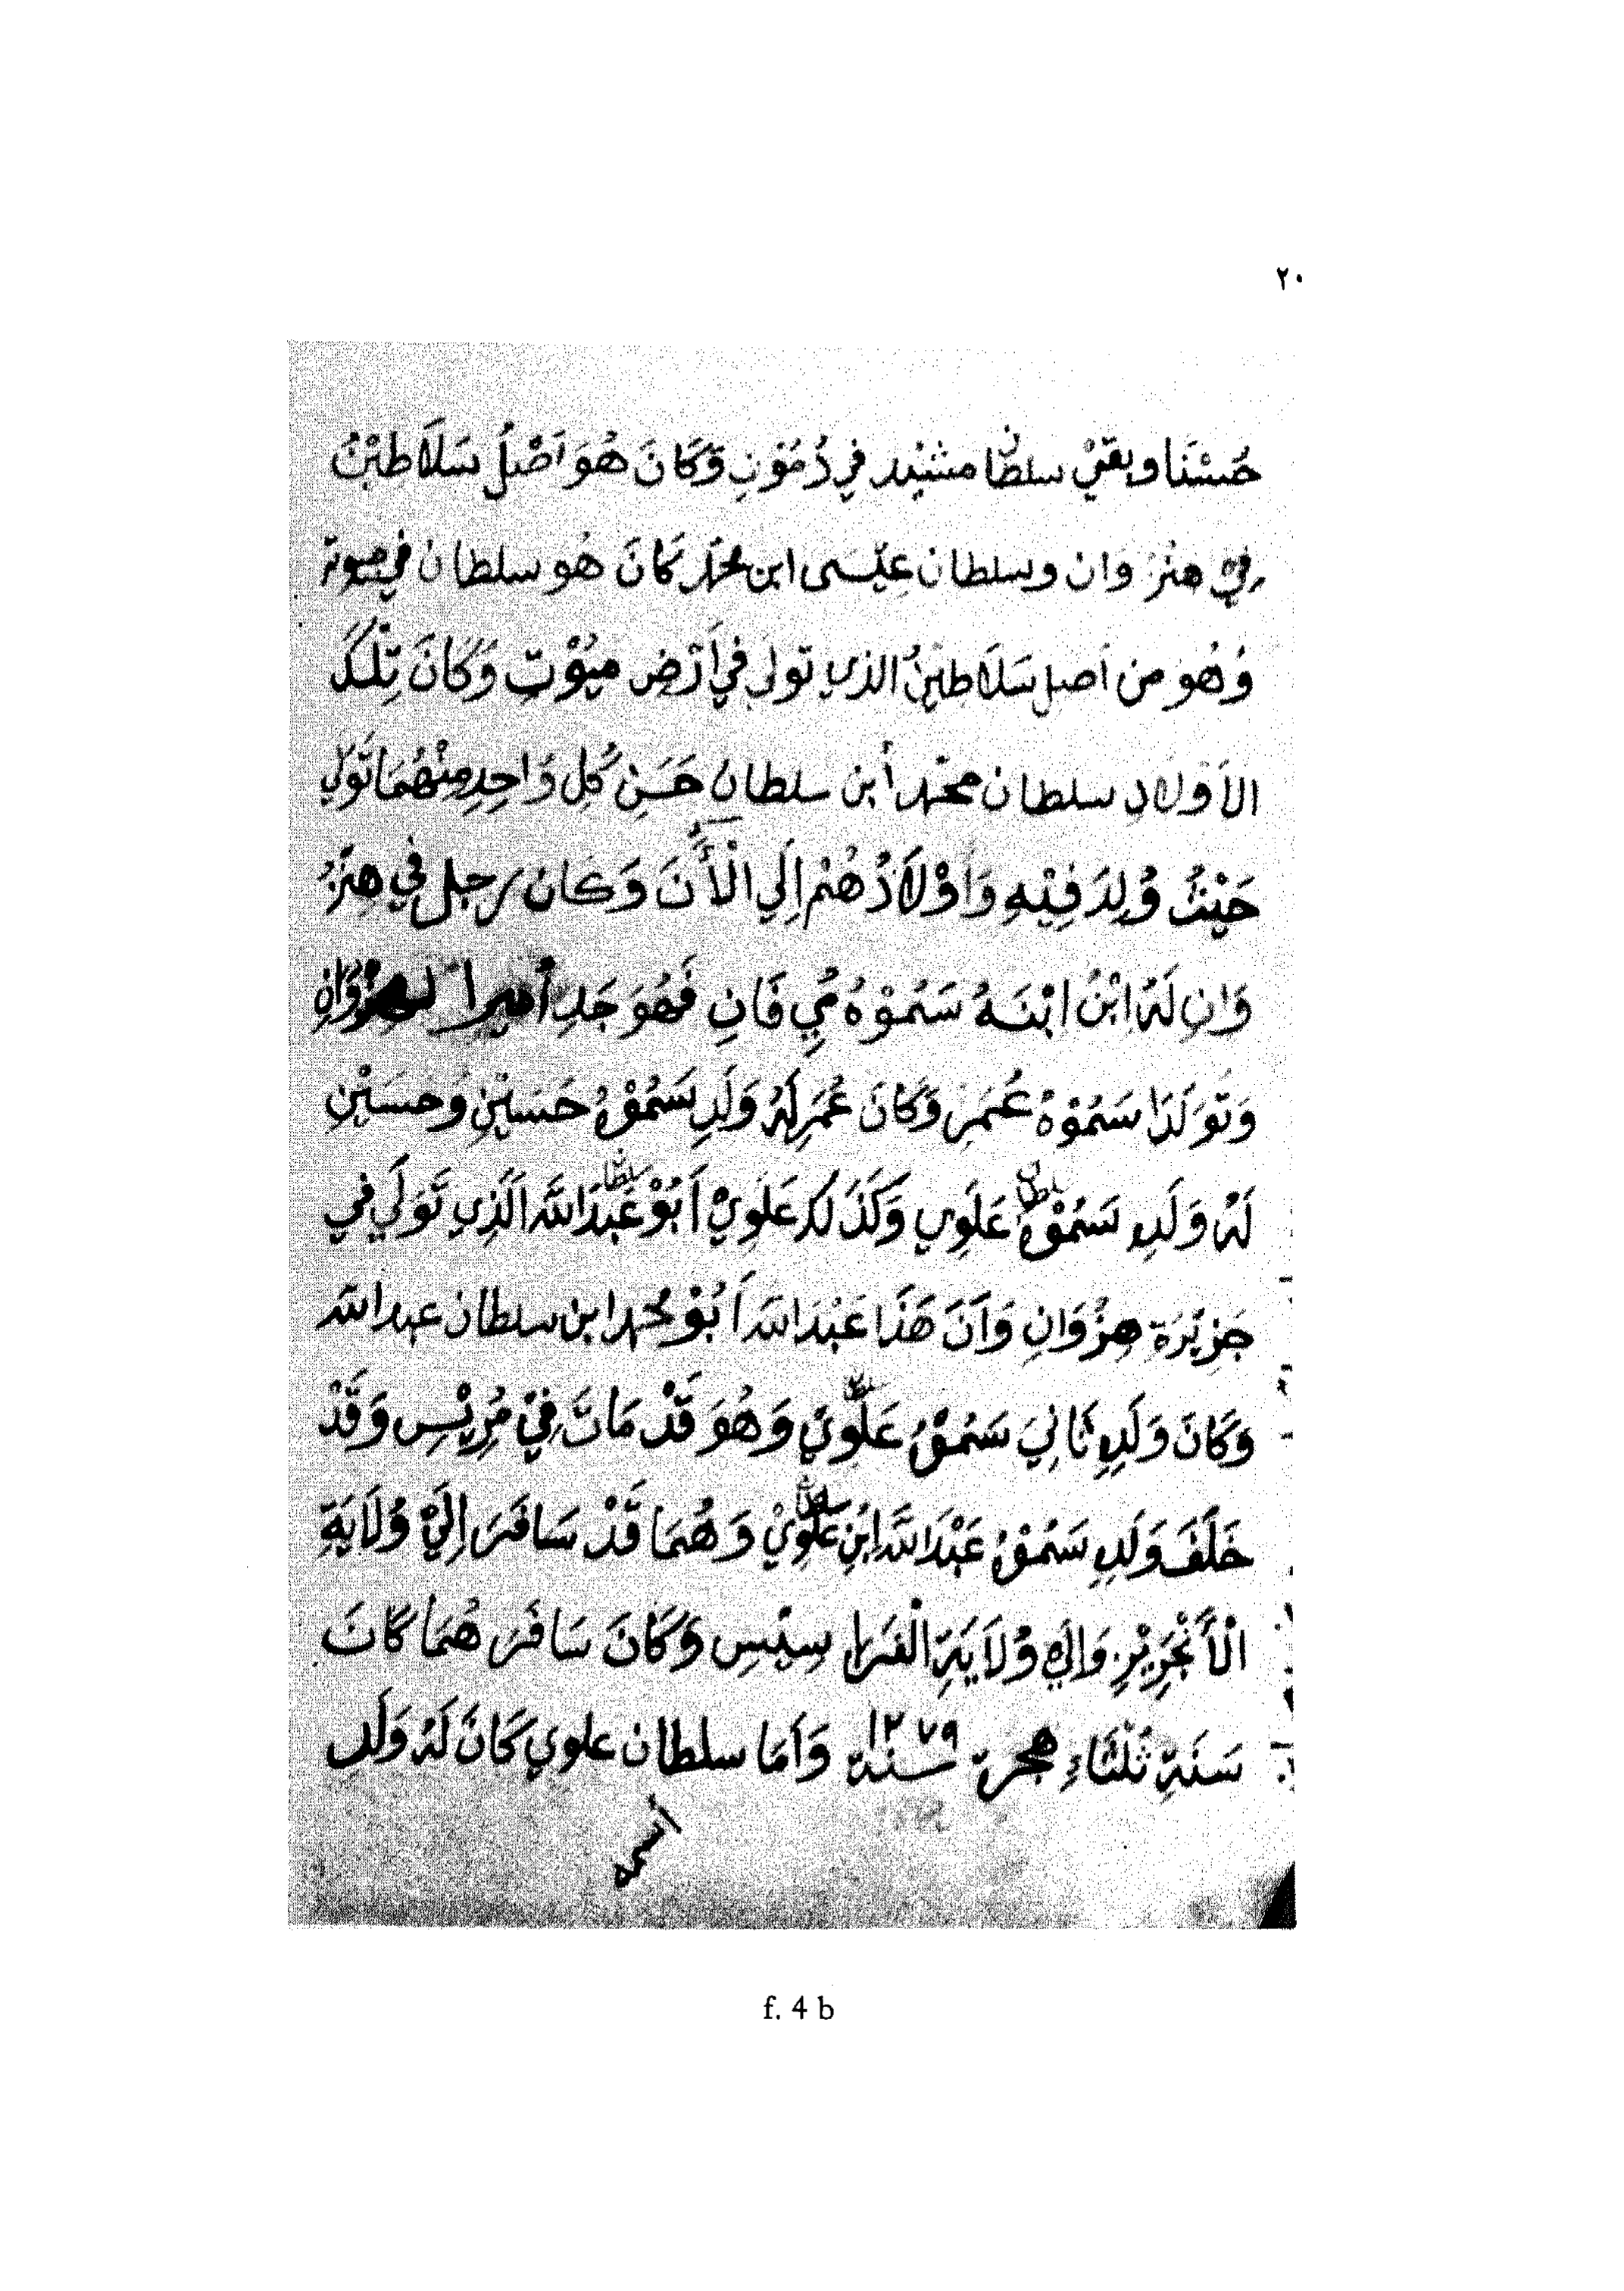 ٢٠
حُسْنَا وبقيْ سلطان مشنْد في دُمُوْنِ وَكَانَ هُوَ اَصْلُ سَلَاطيْنُ
فِيْ هنْزُ وان وسلطان عيْسى ابن محمد كَانَ هُو سلطان في موتـ
وَهُو من اَصل سَلَاطيْنُ الذي تولى في اَرْض ميُوْتِ وَكَانَ تِلْكَ
الاَوْلاَدِ سلطان محمد أبن سلطان حَسَنْ كُلِ وَاحِدِ مِنْهُمَا تَوَلي
حَيْثُ وُلِدَ فِيْهِ وَاَوْلَادُهُمْ اِلَي الْأَنَ وَكَان رَجل في هِنْزُ
وَانِ لَهُ ابْنُ ابْنَـهُ سَمُوْهُ مُمِي فَانِ فَهُوَ جَدِ أميرا لهنزُوَانِ
وَتَوَلَدَا سَمُوْهُ عُمَرِ وَكَانَ عُمَرِ لَهُ وَلَدِ سَمُوْهُ حَسَيْنِ وَحسَيْنِ
لَهُ وَلَدِ سَمُوْهُ سلطان عَلَوِي وَكَذَلك عَلَوِيْ اَبُوْ سلطان عَبْدَاللَّه اَلَّذِي تَوَلَي في
جَزِيْرَة هِنْزُوَانِ وَاَنَ هَذَا عَبْدَاللَه اَبُوْ محمد ابن سلطان عبدالله
وَكَانَ وَلَدِ ثَانِيَ سَمُوْهُ سلطان عَلَوِيْ وَهُوَ قَدْ مَاتَ فِيْ مُرِيْسِ وَقَدْ
خَلَفَ وَلَدِ سَمُوْهُ عَبْدَاللَّه ابْنِ سلطان عَلَوِيْ وَهُمَا قَدْ سَافَرَ اِلَيْ وُلَايَةِ
الْأَنْجَرِيْزِ وَاِلَيْ وُلَايَةِ الْفَرَا سِيْسِ وَكَانَ سَافَرَ هُمَا كَانَ
سَنَةِ ثَلْثَاءِ هجرة سنة ١٢٧٩ وَاَمَا سلطان علوي كَانَ لَهُ وَلَدِ
اسمه
f. 4 b